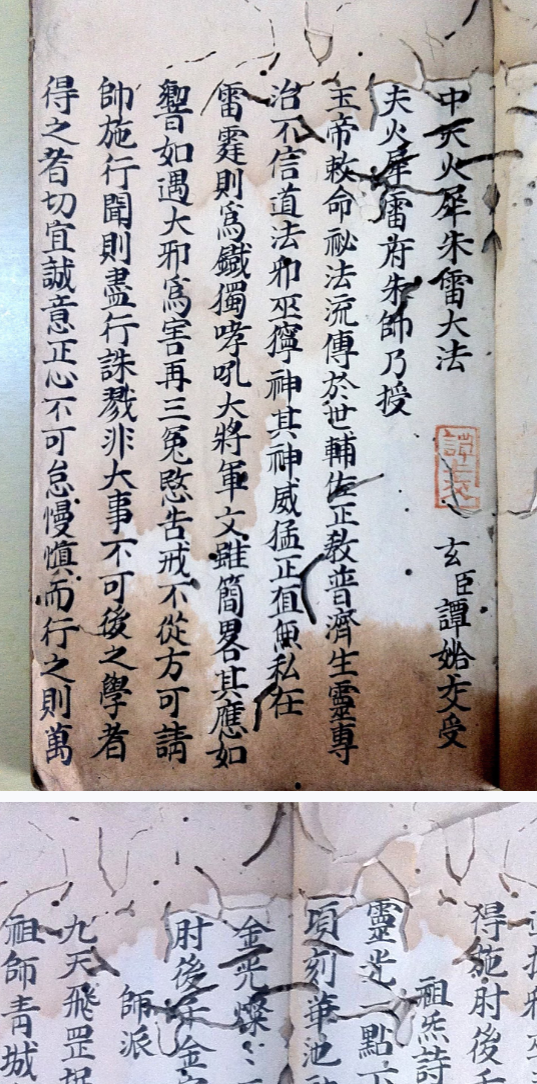 中天火犀朱雷大法 玄臣譚文受
夫火犀雷府朱帥乃授
玉帝敕命祕法流傳於世輔佐正教普濟生靈專
治不信道法邪巫獰神其神威猛正直無私在
雷霆則為鐵獨哮吼大將軍文雖簡畧其應如
響如遇大邪為害再三冤愍告戒不從方可請
帥施行聞則盡行誅戮非大事不可後之學者
得之者切宜誠意正心不可怠慢慎而行之則萬
得施肘後
祖炁詩
靈光一點
頃刻華池
金光燦
肘後金
師派
九天飛罡
祖師青城